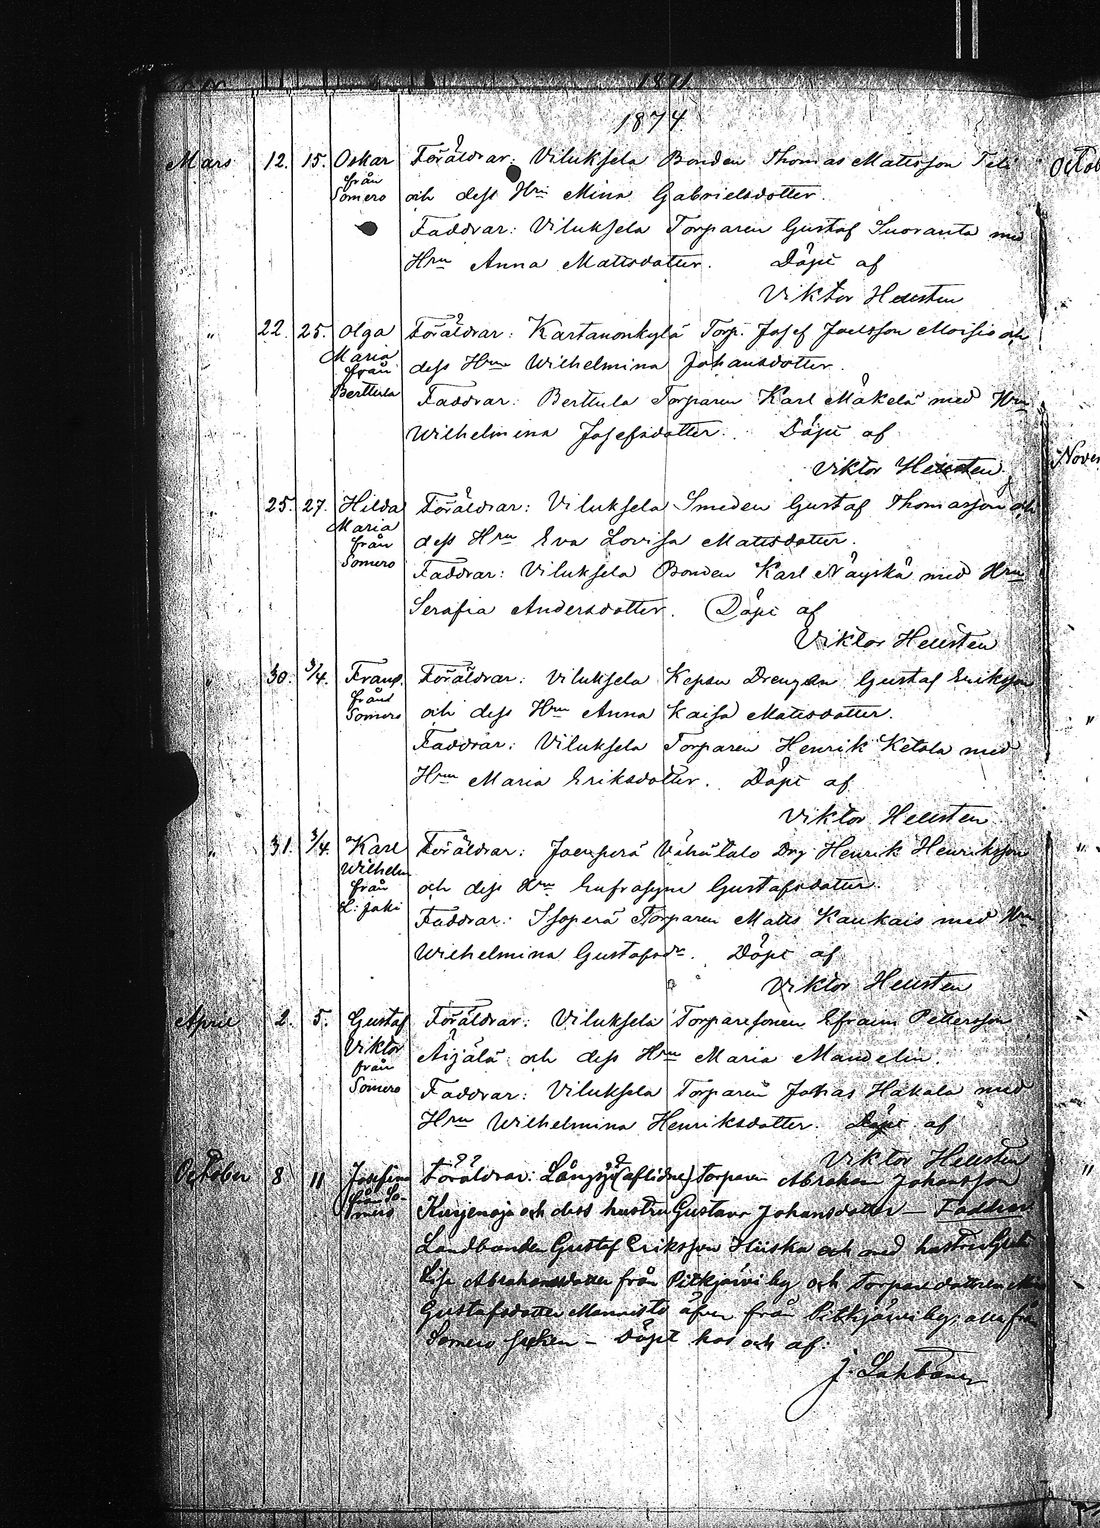 1871
1874
Mars 12. 15. Oskar från Somero Föräldrar: Viluksela Bonden Thomas Mattsson Teli
och dess Hru Mina Gabrielsdotter.
Faddrar: Viluksela Torparen Gustaf Suoranta med
Hru Anna Mattsdotter. Döpt af
Viktor Hellsten
" 22. 25. Olga Maria från Berttula Föräldrar: Kartanonkylä Torp. Josef Joelsson Moisio och
dess Hru Wilhelmina Johansdotter.
Faddrar: Berttula Torparen Karl Mäkelä med Hru
Wilhelmina Josefsdotter. Döpt af
Viktor Hellsten
" 25. 27. Hilda Maria från Somero Föräldrar: Viluksela Smeden Gustaf Thomasson och
dess Hru Eva Lovisa Mattsdotter.
Faddrar: Viluksela Bonden Karl Näyskä med Hru
Serafia Andersdotter. Döpt af
Viktor Hellsten
" 30. 3/4. Frans från Somero Föräldrar: Viluksela Kepsu Drengen Gustaf Eriksson
och dess Hru Anna Kaisa Mattsdotter.
Faddrar: Viluksela Torparen Henrik Ketola med
Hru Maria Eriksdotter. Döpt af
Viktor Hellsten
" 31. 3/4. Karl Wilhelm från L: joki Föräldrar: Joenperä Vähätalo Drg Henrik Henriksson
och dess Hru Eufrosyne Gustafsdotter.
Faddrar: Isoperä Torparen Matts Kaukais med Hru
Wilhelmina Gustafsdr. Döpt af
Viktor Hellsten
April 2. 5. Gustaf Viktor från Somero Föräldrar: Viluksela Torparesonen Efraim Pettersson
Äijälä och dess Hru Maria Mandelin.
Faddrar: Viluksela Torparen Johas Hakala med
Hru Wilhelmina Henriksdotter. Döpt af
Viktor Hellsten
October 8 11 Josefina från Somero Föräldrar: Långsjö (aflidne) Torparen Abraham Johansson
Kurjenoja och dess hustru Gustava Johansdotter — Faddrar
Landbonden Gustaf Eriksson Hiiska och med hustru
Lisa Abrahamsdotter från Pitkjärvi by och Torpare dottren
Gustafsdotter Mannisto äfven från Pitkjärvi by, alla från
Somero socken — Döpt hos och af:
J. Sahlbom